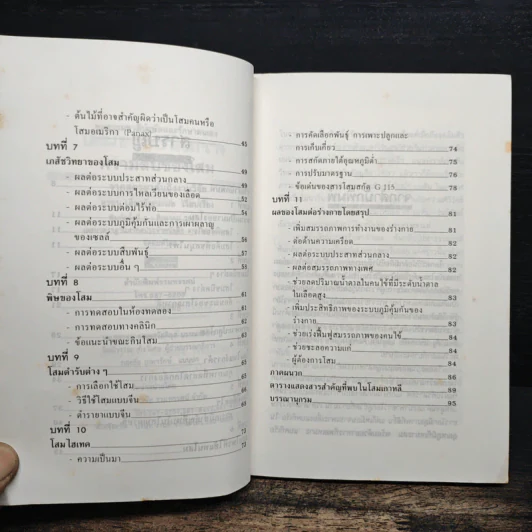 - ต้นไม้ที่อาจสำคัญผิดว่าเป็นโสมคนหรือ
โสมอเมริกา (Panax) 45
บทที่ 7
เภสัชวิทยาของโสม 49
- ผลต่อระบบประสาทส่วนกลาง 49
- ผลต่อระบบการไหลเวียนของเลือด 52
- ผลต่อระบบต่อมไร้ท่อ 54
- ผลต่อระบบภูมิคุ้มกันและการเผาผลาญ
ของเซลล์ 55
- ผลต่อระบบสืบพันธุ์ 56
- ผลต่อระบบอื่น ๆ
บทที่ 8
พิษของโสม
- การทดสอบในห้องทดลอง
- การทดสอบทางคลินิก
- ข้อแนะนำขณะกินโสม
บทที่ 9
โสมตำรับต่าง ๆ
- การเลือกใช้โสม
- วิธีใช้โสมแบบจีน
- ตำรายาแบบจีน
บทที่ 10
โสมไฮเทค
- ความเป็นมา
- การคัดเลือกพันธุ์ การเพาะปลูกและ
การเก็บเกี่ยว 74
- การสกัดภายใต้อุณหภูมิต่ำ 75
- การปรับมาตรฐาน 76
- ข้อเด่นของสารโสมสกัด G 115 78
บทที่ 11
ผลของโสมต่อร่างกายโดยสรุป 81
- เพิ่มสมรรถภาพการทำงานของร่างกาย 81
- ต่อต้านความเครียด 82
- ผลต่อระบบประสาทส่วนกลาง 82
- ผลต่อสมรรถภาพทางเพศ 82
- ช่วยลดปริมาณน้ำตาลในคนไข้ที่มีระดับน้ำตาล
ในเลือดสูง 83
- เพิ่มประสิทธิภาพของระบบภูมิคุ้มกันของ
ร่างกาย 83
- ช่วยเร่งฟื้นฟูสมรรถภาพของคนไข้ 84
- ช่วยชะลอความแก่ 84
- ผู้ต้องการโสม 84
ภาคผนวก 86
ตารางแสดงสารสำคัญที่พบในโสมเกาหลี 89
บรรณานุกรม 95